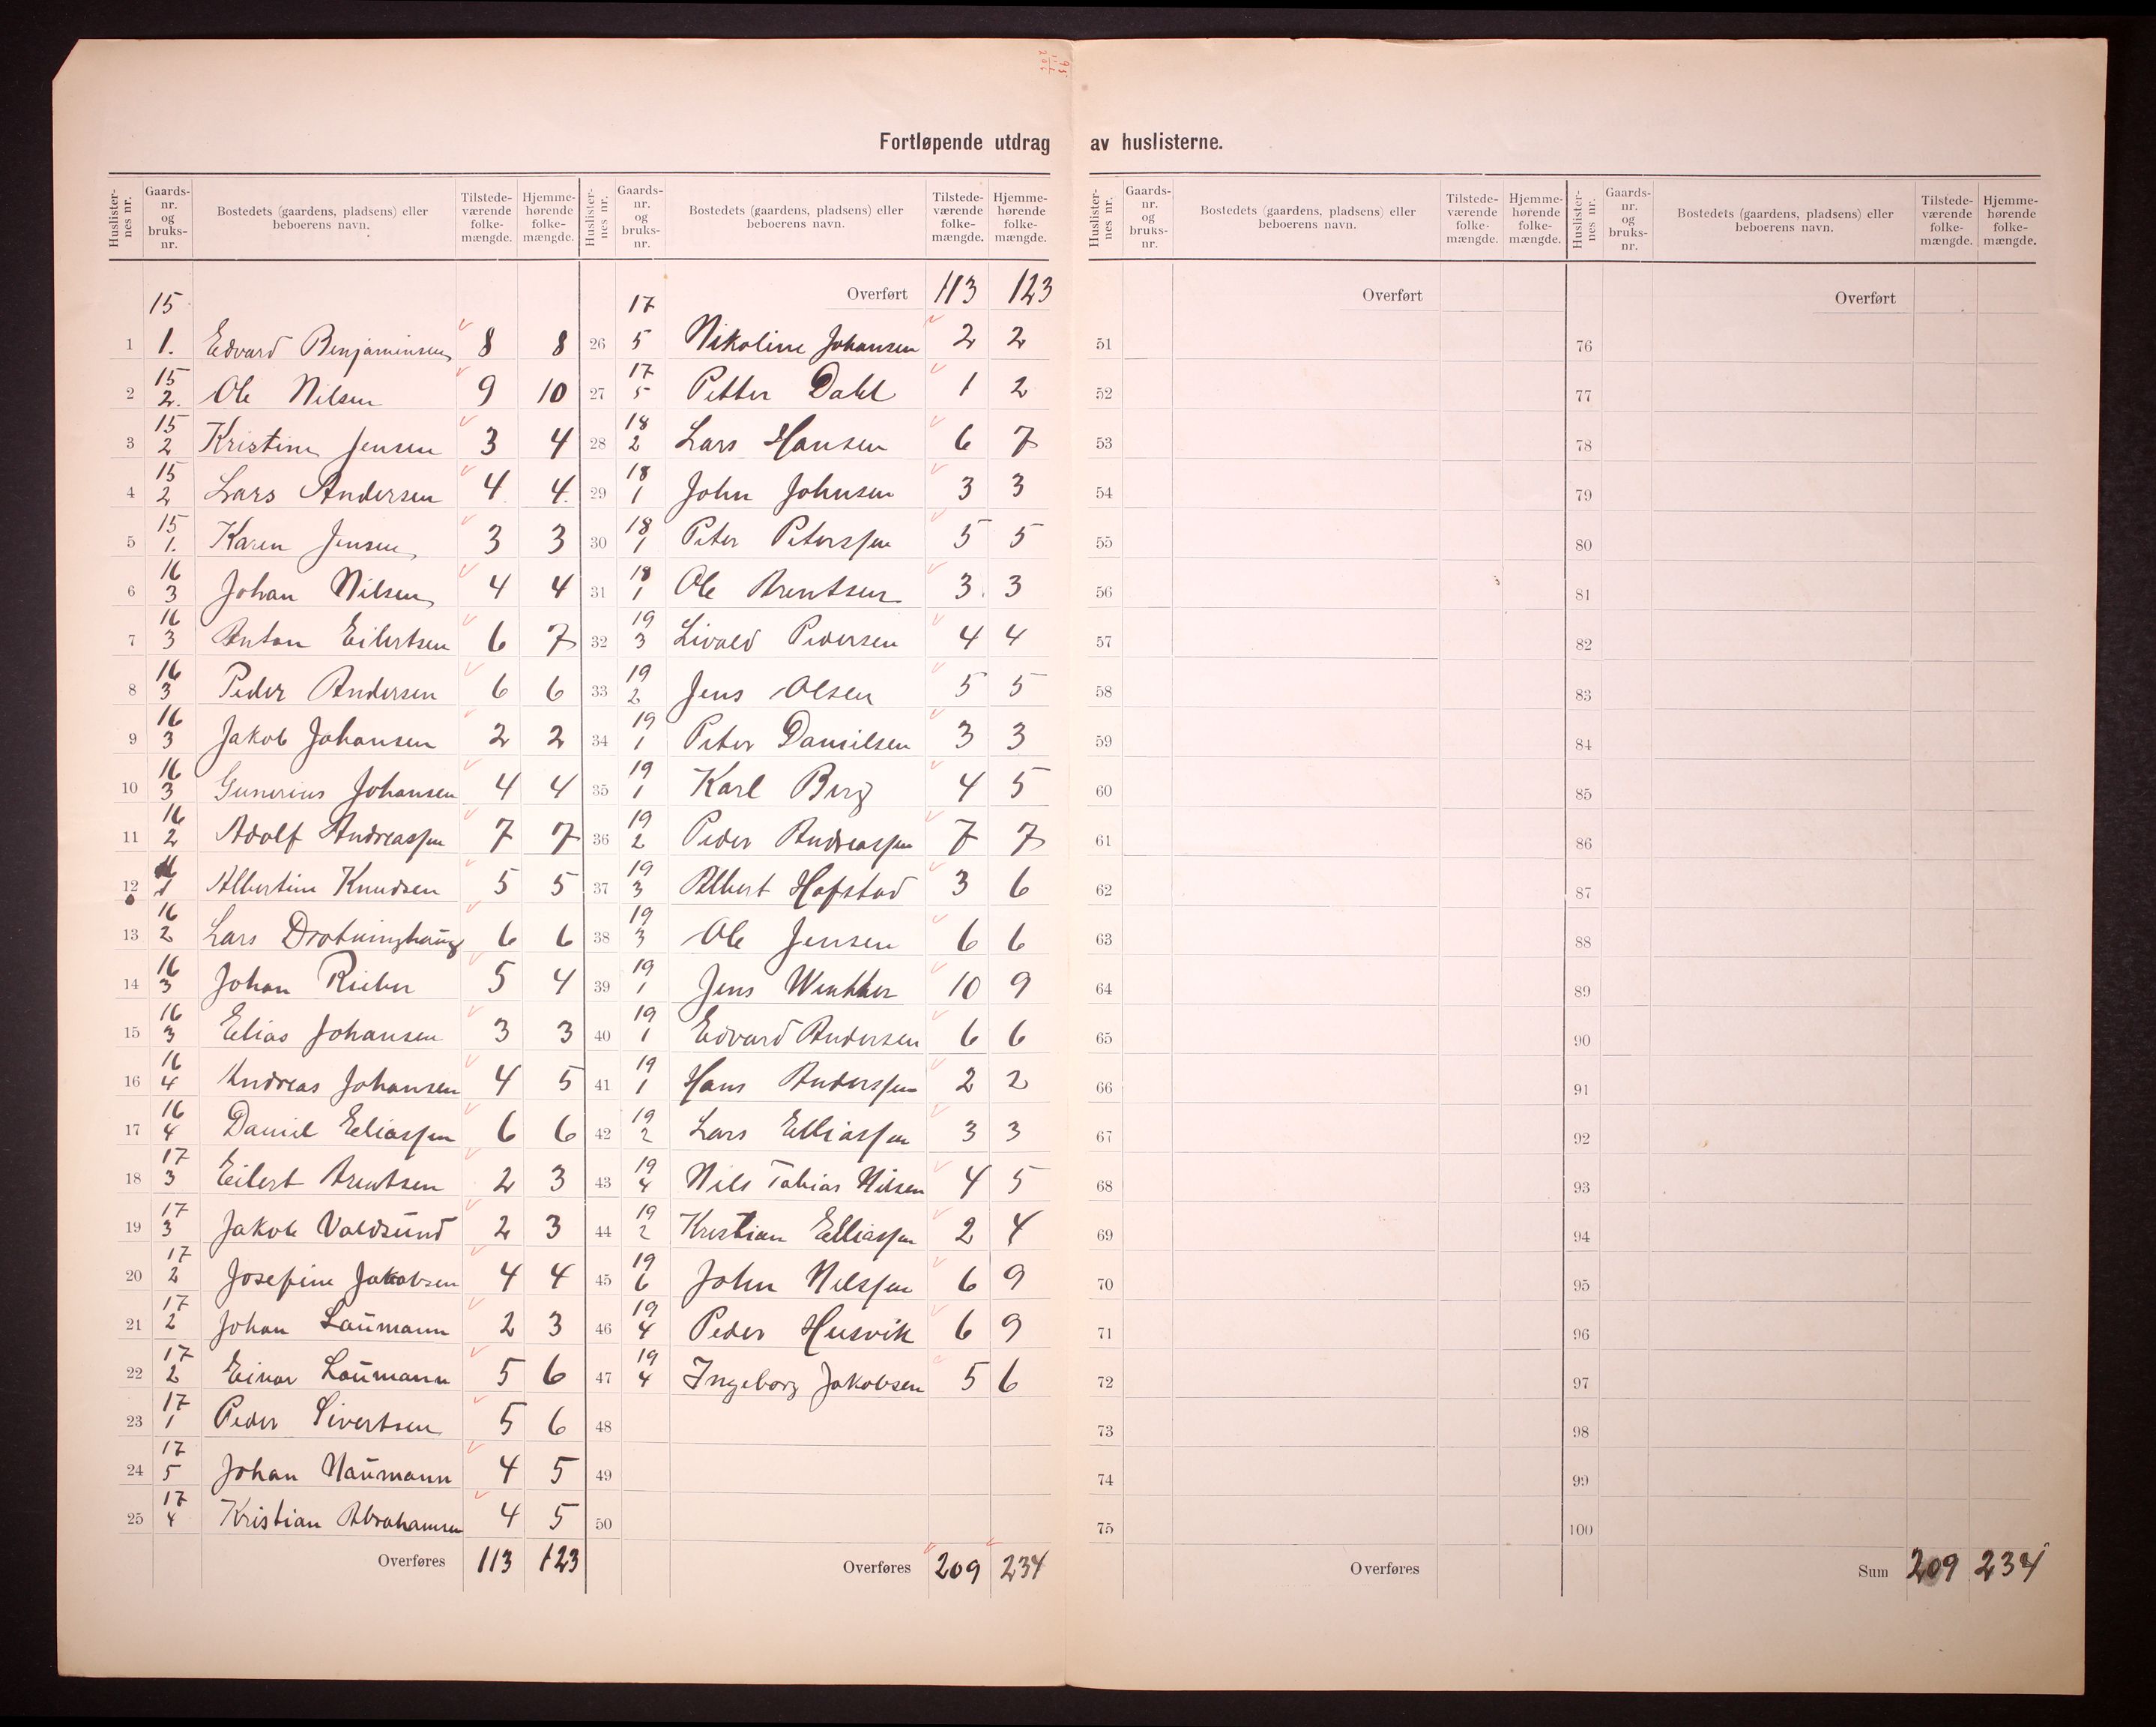 Fortløpende utdrag av huslisterne.
Huslisternes nr. Gaardsnr. og bruksnr. Bostedets (gaardens, pladsens) eller beboerens navn. Tilstedeværende folkemængde. Hjemmehørende folkemængde.
15
1 1. Edvard Benjaminsen 8 8
2 15 2. Ole Nilsen 9 10
3 15 2 Kristine Jensen 3 4
4 15 2 Lars Andersen 4 4
5 15 1. Karen Jensen 3 3
6 16 3 Johan Nilsen 4 4
7 16 3 Anton Eilertsen 6 7
8 16 3 Peder Andersen 6 6
9 16 3 Jakob Johansen 2 2
10 16 3 Gunerius Johansen 4 4
11 16 2 Adolf Andreassen 7 7
12 1 Albertine Knudsen 5 5
13 16 2 Lars Drotninghaug 6 6
14 16 3 Johan Rieber 5 4
15 16 3 Elias Johansen 3 3
16 16 4 Andreas Johansen 4 5
17 16 4 Daniel Eliassen 6 6
18 17 3 Eilert Arentsen 2 3
19 17 3 Jakob Valdsund 2 3
20 17 2 Josefine Jakobsen 4 4
21 17 2 Johan Laumann 2 3
22 17 2 Einar Laumann 5 6
23 17 1 Peder Sivertsen 5 6
24 17 5 Johan Naumann 4 5
25 17 4 Kristian Abrahamsen 4 5
Overføres 113 123
Huslisternes nr. Gaardsnr. og bruksnr. Bostedets (gaardens, pladsens) eller beboerens navn. Tilstedeværende folkemængde. Hjemmehørende folkemængde.
Overført 113 123
26 17 5 Nikoline Johansen 2 2
27 17 5 Petter Dahl 1 2
28 18 2 Lars Hansen 6 7
29 18 1 John Johnsen 3 3
30 18 1 Peter Peterssen 5 5
31 18 1 Ole Arentsen 3 3
32 19 3 Livald Pedersen 4 4
33 19 2 Jens Olsen 5 5
34 19 1 Peter Danielsen 3 3
35 19 1 Karl Berg 4 5
36 19 2 Peder Andreassen 7 7
37 19 3 Albert Hofstad 3 6
38 19 3 Ole Jensen 6 6
39 19 1 Jens Winther 10 9
40 19 1 Edvard Andersen 6 6
41 19 1 Hans Anderssen 2 2
42 19 2 Lars Elliassen 3 3
43 19 4 Nils Tobias Nilsen 4 5
44 19 2 Kristian Elliassen 2 4
45 19 6 John Nilssen 6 9
46 19 4 Peder Husvik 6 9
47 19 4 Ingeborg Jakobsen 5 6
48
49
50
Overføres 209 234
Huslisternes nr. Gaardsnr. og bruksnr. Bostedets (gaardens, pladsens) eller beboerens navn. Tilstedeværende folkemængde. Hjemmehørende folkemængde.
Overført
51
52
53
54
55
56
57
58
59
60
61
62
63
64
65
66
67
68
69
70
71
72
73
74
75
Overføres
Huslisternes nr. Gaardsnr. og bruksnr. Bostedets (gaardens, pladsens) eller beboerens navn. Tilstedeværende folkemængde. Hjemmehørende folkemængde.
Overført
76
77
78
79
80
81
82
83
84
85
86
87
88
89
90
91
92
93
94
95
96
97
98
99
100
Sum 209 234